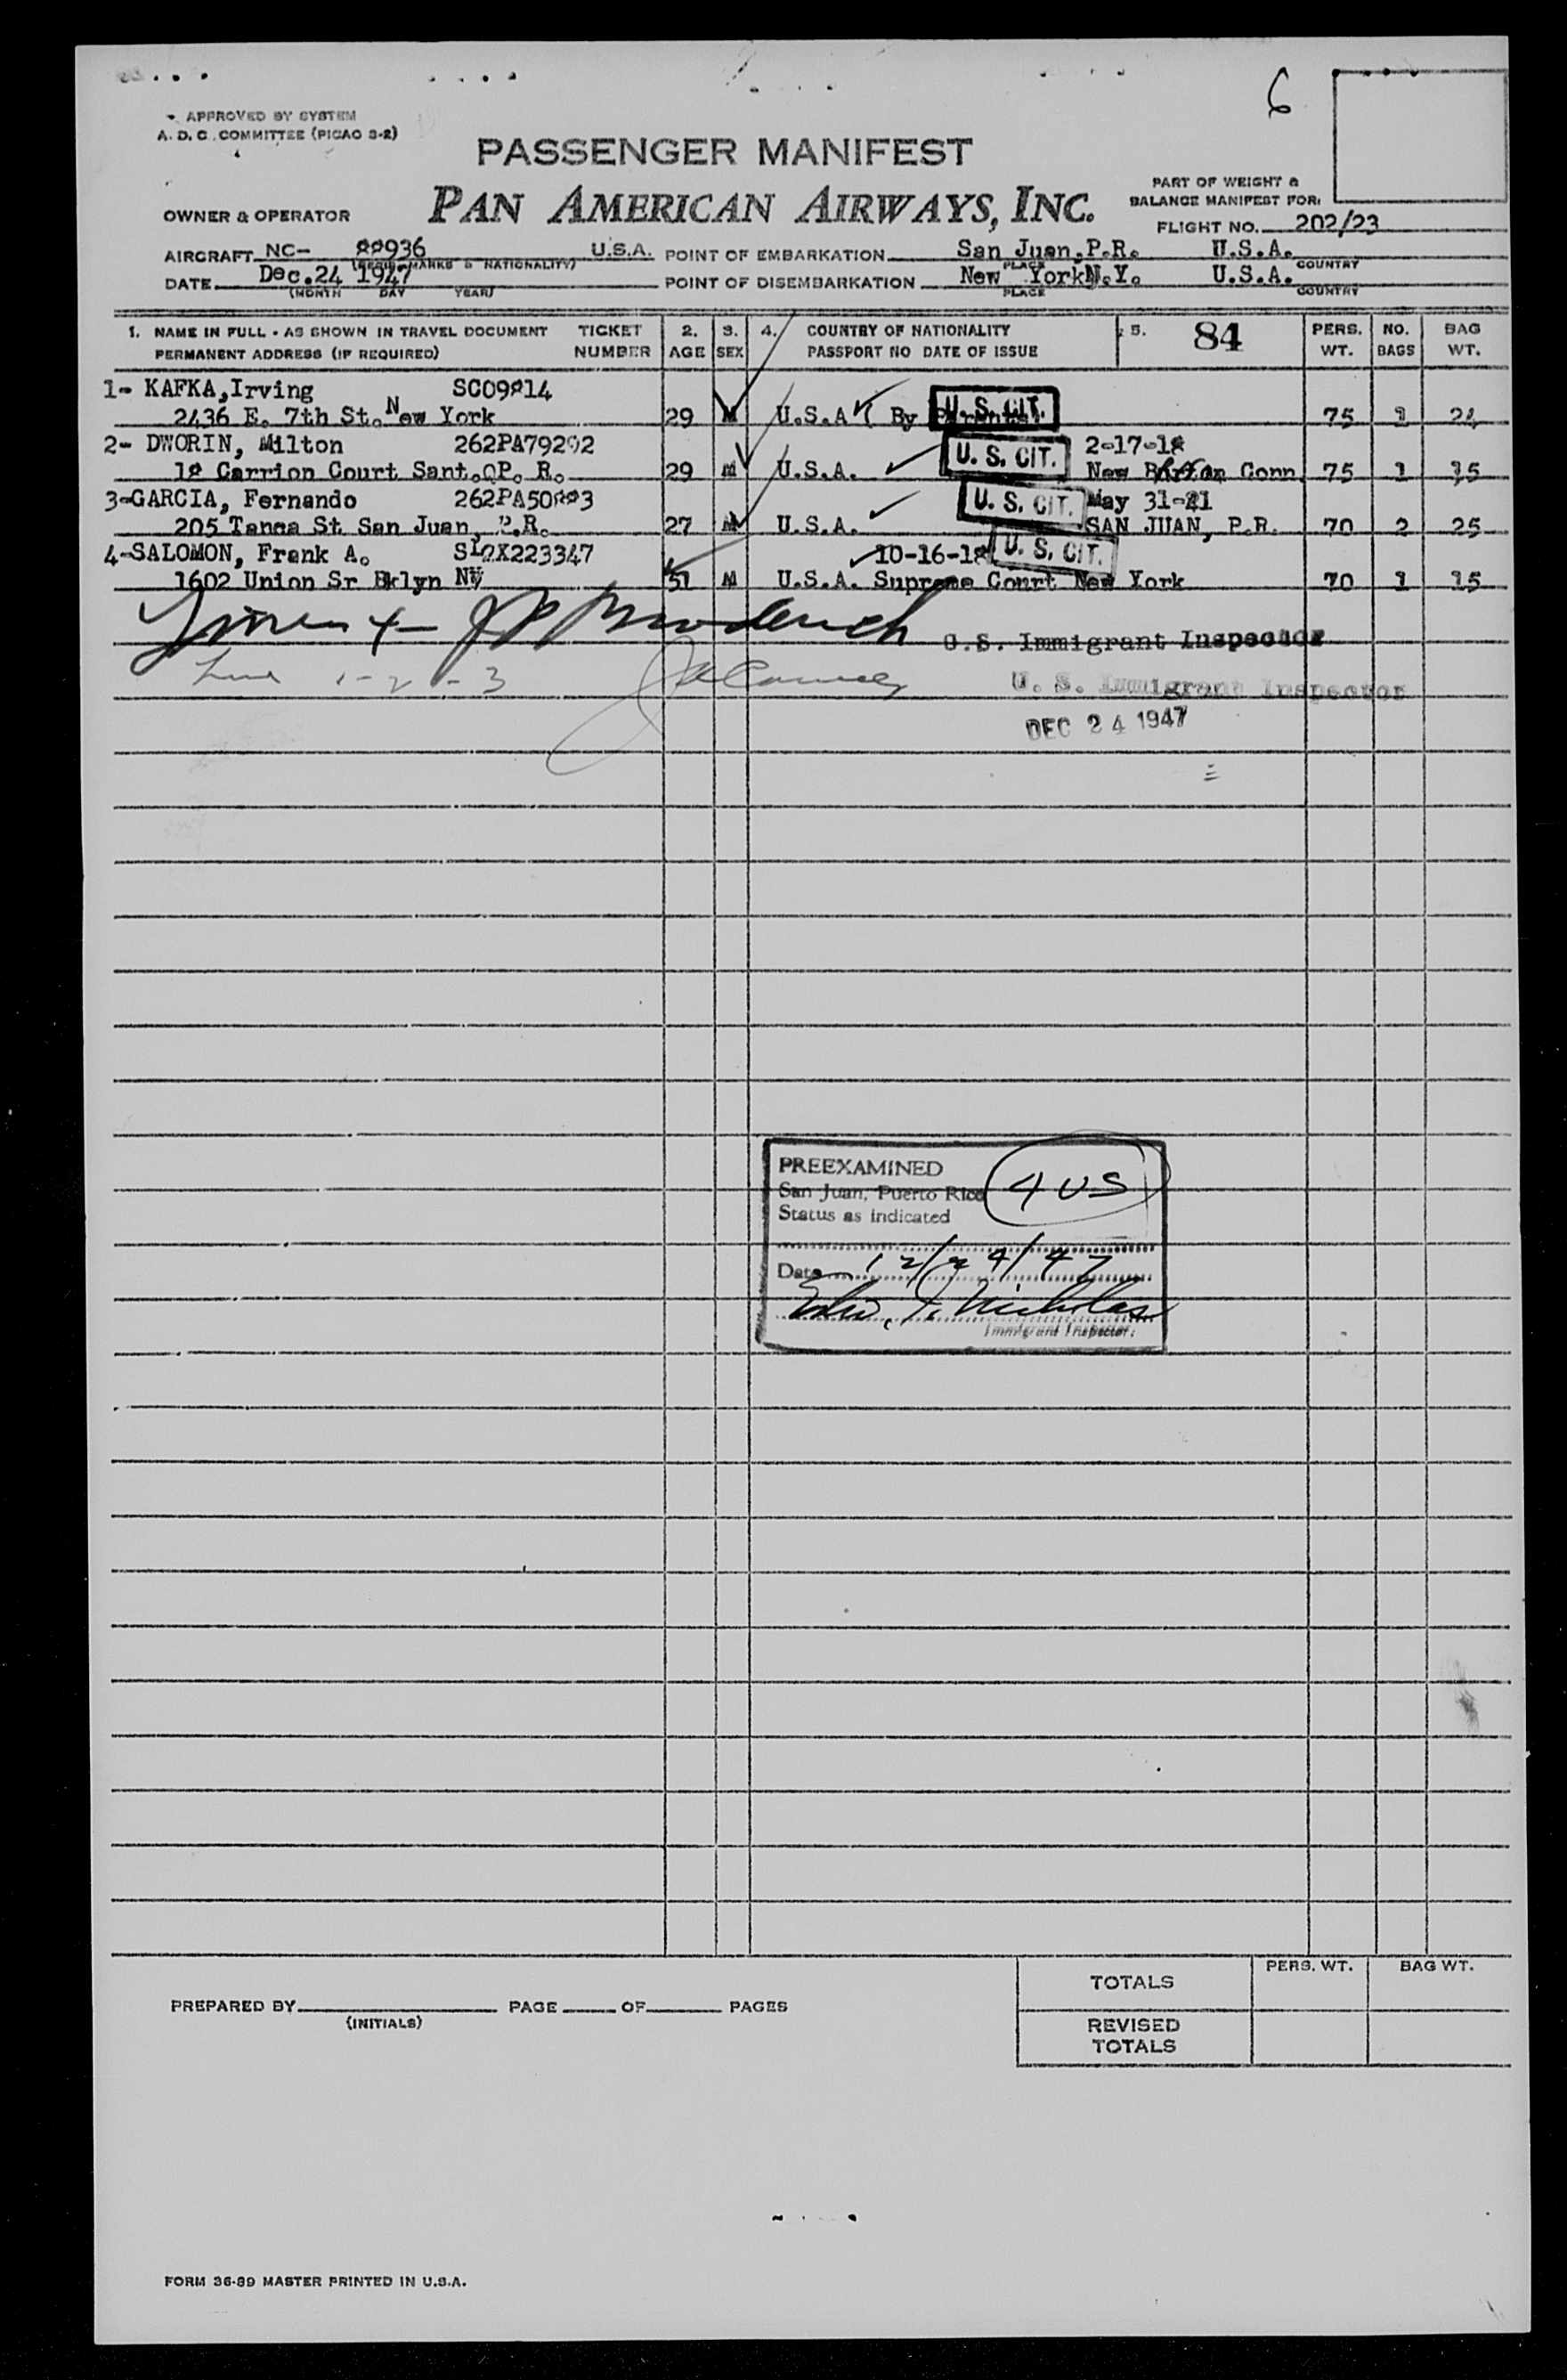 6
APPROVED BY SYSTEM
A. D. C. COMMITTEE (PICAO 3-2)
PASSENGER MANIFEST
PAN AMERICAN AIRWAYS, INC.
OWNER & OPERATOR
PART OF WEIGHT &
BALANCE MANIFEST FOR:
FLIGHT NO. 202/23
AIRCRAFT NC- 88936 U.S.A. POINT OF EMBARKATION San Juan, P.R. U.S.A.
(REGIS. MARKS & NATIONALITY) PLACE COUNTRY
DATE Dec. 24 1947 POINT OF DISEMBARKATION New York N.Y. U.S.A.
(MONTH DAY YEAR) PLACE COUNTRY
1. NAME IN FULL - AS SHOWN IN TRAVEL DOCUMENT TICKET 2. 3. 4. COUNTRY OF NATIONALITY 5. 84 PERS. NO. BAG
PERMANENT ADDRESS (IF REQUIRED) NUMBER AGE SEX PASSPORT NO DATE OF ISSUE WT. BAGS WT.
1- KAFKA, Irving SC09814
2436 E. 7th St. New York 29 M U.S.A ( By Parents) U.S. CIT. 75 1 24
2- DWORIN, Milton 262PA79202 U. S. CIT. 2-17-18
18 Carrion Court Sant. P. R. 29 M U.S.A. New Conn. 75 1 15
3-GARCIA, Fernando 262PA50883 U. S. CIT. May 31-21
205 Tanca St San Juan, P.R. 27 M U.S.A. SAN JUAN, P.R. 70 2 25
4-SALOMON, Frank A. 10-16-18 U. S. CIT.
1602 Union Sr Bklyn NY 51 M U.S.A. Supreme Court New York 70 1 15
U.S. Immigrant Inspector
1-2-3
U. S. Immigrant Inspector
DEC 24 1947
PREEXAMINED
San Juan, Puerto Rico 4 US
Status as indicated
Date 12/24/47
Edw. J. Nicholas
Immigrant Inspector.
TOTALS PERS. WT. BAG WT.
PREPARED BY PAGE OF PAGES
(INITIALS)
REVISED
TOTALS
FORM 36-89 MASTER PRINTED IN U.S.A.